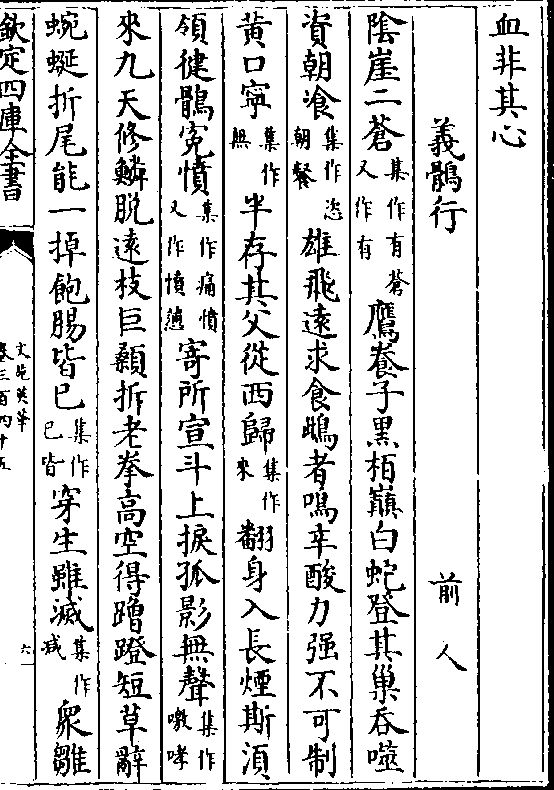 血非其心
義鶻行 前人
陰崖二蒼集作有蒼又作有鷹養子黒栢巔白蛇登其巢吞噬
資朝飡集作恣朝餐雄飛遠求食鴟者鳴辛酸力强不可制
黄口寧集作無半存其父從西歸集作來翻身入長煙斯湏
領健鶻寃憤集作痛憤又作憤懣寄所宣斗上捩孤影無聲集作噭哮
來九天修鱗脱遠枝巨顙拆老拳高空得蹭蹬短草辭
蜿蜒折尾能一掉飽腸皆已集作已皆穿生雖滅集作衆雛
欽定四庫全書
文苑英華
卷三百四十五
六